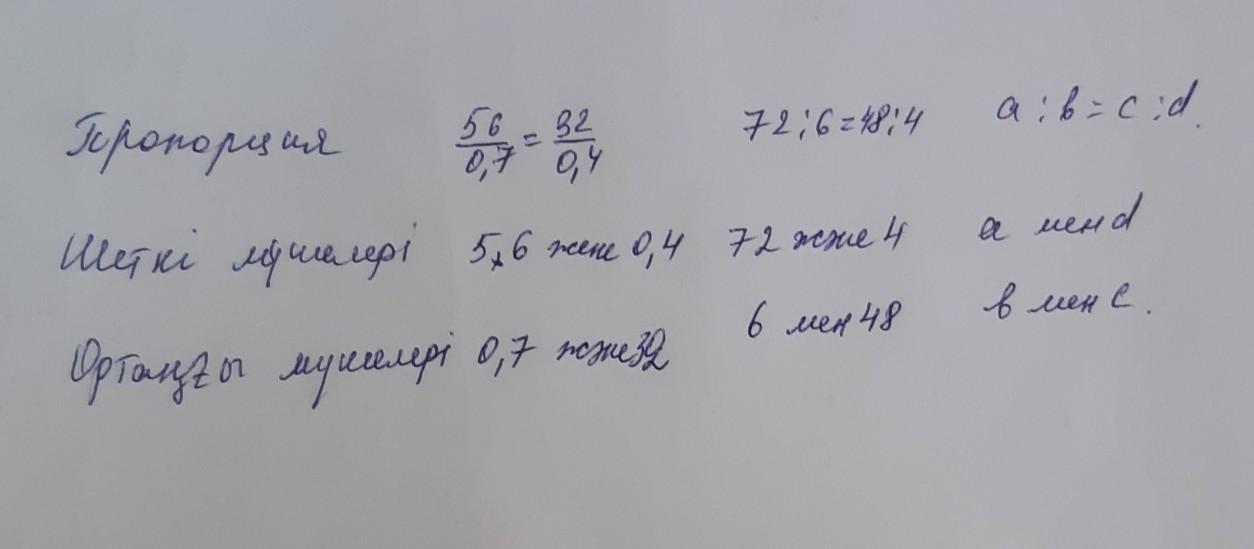 Пропорция 56/0,7 = 32/0,4 72:6=48:4 a:b=c:d.
Шеткі мүшелері 5,6 және 0,4 72 және 4 a мен d
Ортаңғы мүшелері 0,7 және 32 6 мен 48 b мен c.